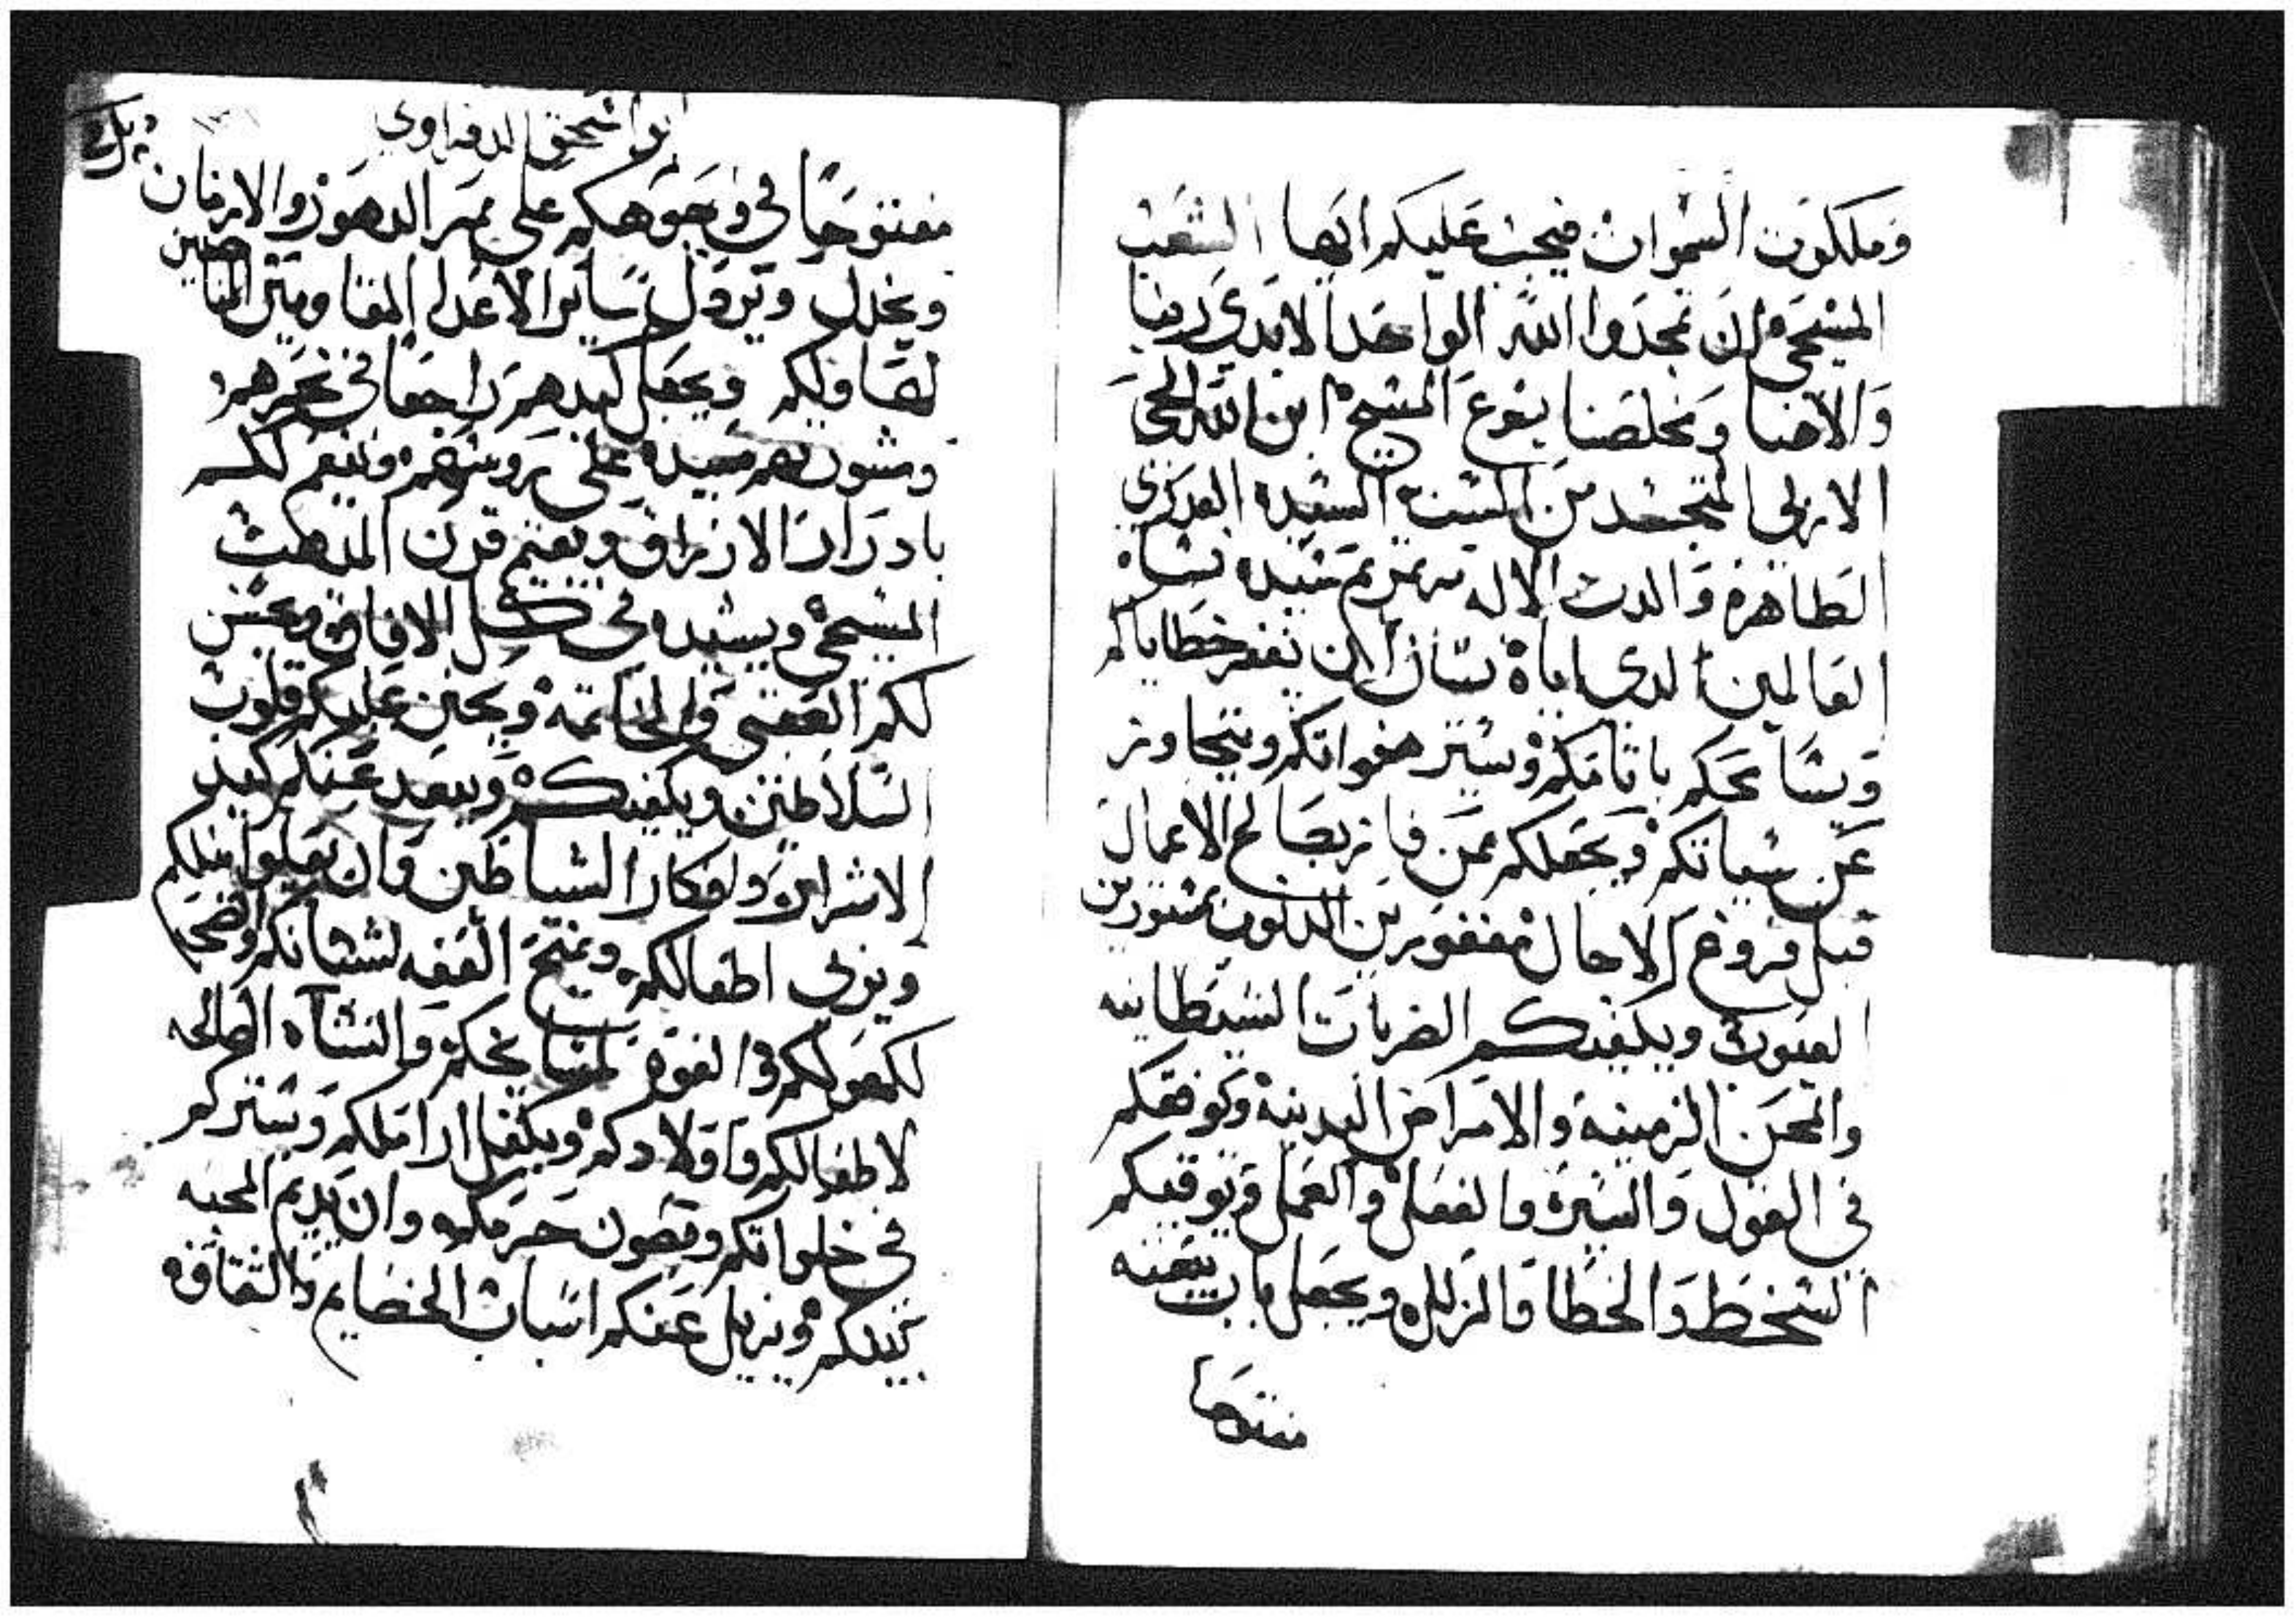 وملكوت السموات فيجب عليكم ايها الشعب
المسيحي ان تمجدوا الله الواحد الابدي ربنا
والاهنا ومخلصنا يسوع المسيح ابن الله الحي
الازلي المتجسد من الست السيده البكر
الطاهره والدت الاله مرتمريم سيده نساه
العالمين الذي اياه نسال ان يغفر خطاياكم
ويسامحكم باثامكم ويستر هفواتكم ويتجاوز
عن سياتكم ويجعلكم ممن فاز بصالح الاعمال
قبل فروغ الاجال مغفورين الدنوب مستورين
العيوب ويكفيكم الضربات الشيطانيه
والمحن الزمنيه والامراض البدنيه ويوفقكم
في القول والسيره والفعل والعمل ويوقيكم
السخط والخطا والزلل ويجعل باب بيعته
مفتوحا
ابو اسحق
مفتوحا في وجوهكم على ممر الدهور والازمان
ويخدل ساير الاعدا
ويجعل كيدهم راجعا في نحرهم
وينعم لكم
بادرار الارزاق ويقيم قرن المدهب
المسيحي ويشيده في كل الافاق ويحسن
لكم العقبى والخاتمه ويحنن عليكم قلوب
السلاطين ويكفيكم ويبعد عنكم كيد
الاشرار وافكار الشياطين وان
ويربي اطفالكم ويمنح العفه لشبانكم
لكهولكم والقوه لمشايخكم والنشاه الصالحه
لاطفالكم واولادكم ويكفل اراملكم ويستركم
في خلواتكم ويصون حرمكم وان يديم المحبه
بينكم ويزيل عنكم اسباب الخصايم